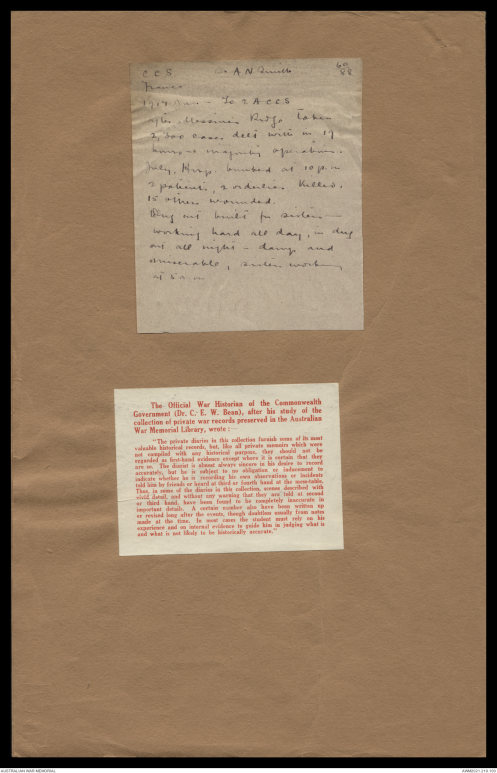 CCS A N Smith 60/88
France
1917 Jun - To 2 A CCS
after Messines Ridge taken
2,800 cases delt with in 17
hours - majority operations.
July, Hosp bombed at 10 p.m
2 patients, 2 orderlies killed.
15 others wounded.
Dug out built for sisters -
working hard all day, in dug
out all night - damp and
miserable, sisters working
at 5 a.m
The Official War Historian of the Commonwealth
Government (Dr. C. E. W. Bean), after his study of the
collection of private war records preserved in the Australian
War Memorial Library, wrote:—
"The private diaries in this collection furnish some of its most
valuable historical records, but, like all private memoirs which were
not compiled with any historical purpose, they should not be
regarded as first-hand evidence except where it is certain that they
are so. The diarist is almost always sincere in his desire to record
accurately, but he is subject to no obligation or inducement to
indicate whether he is recording his own observations or incidents
told him by friends or heard at third or fourth hand at the mess-table.
Thus, in some of the diaries in this collection, scenes described with
vivid detail, and without any warning that they are told at second
or third hand, have been found to be completely inaccurate in
important details. A certain number also have been written up
or revised long after the events, though doubtless usually from notes
made at the time. In most cases the student must rely on his
experience and on internal evidence to guide him in judging what is
and what is not likely to be historically accurate."
AUSTRALIAN WAR MEMORIAL